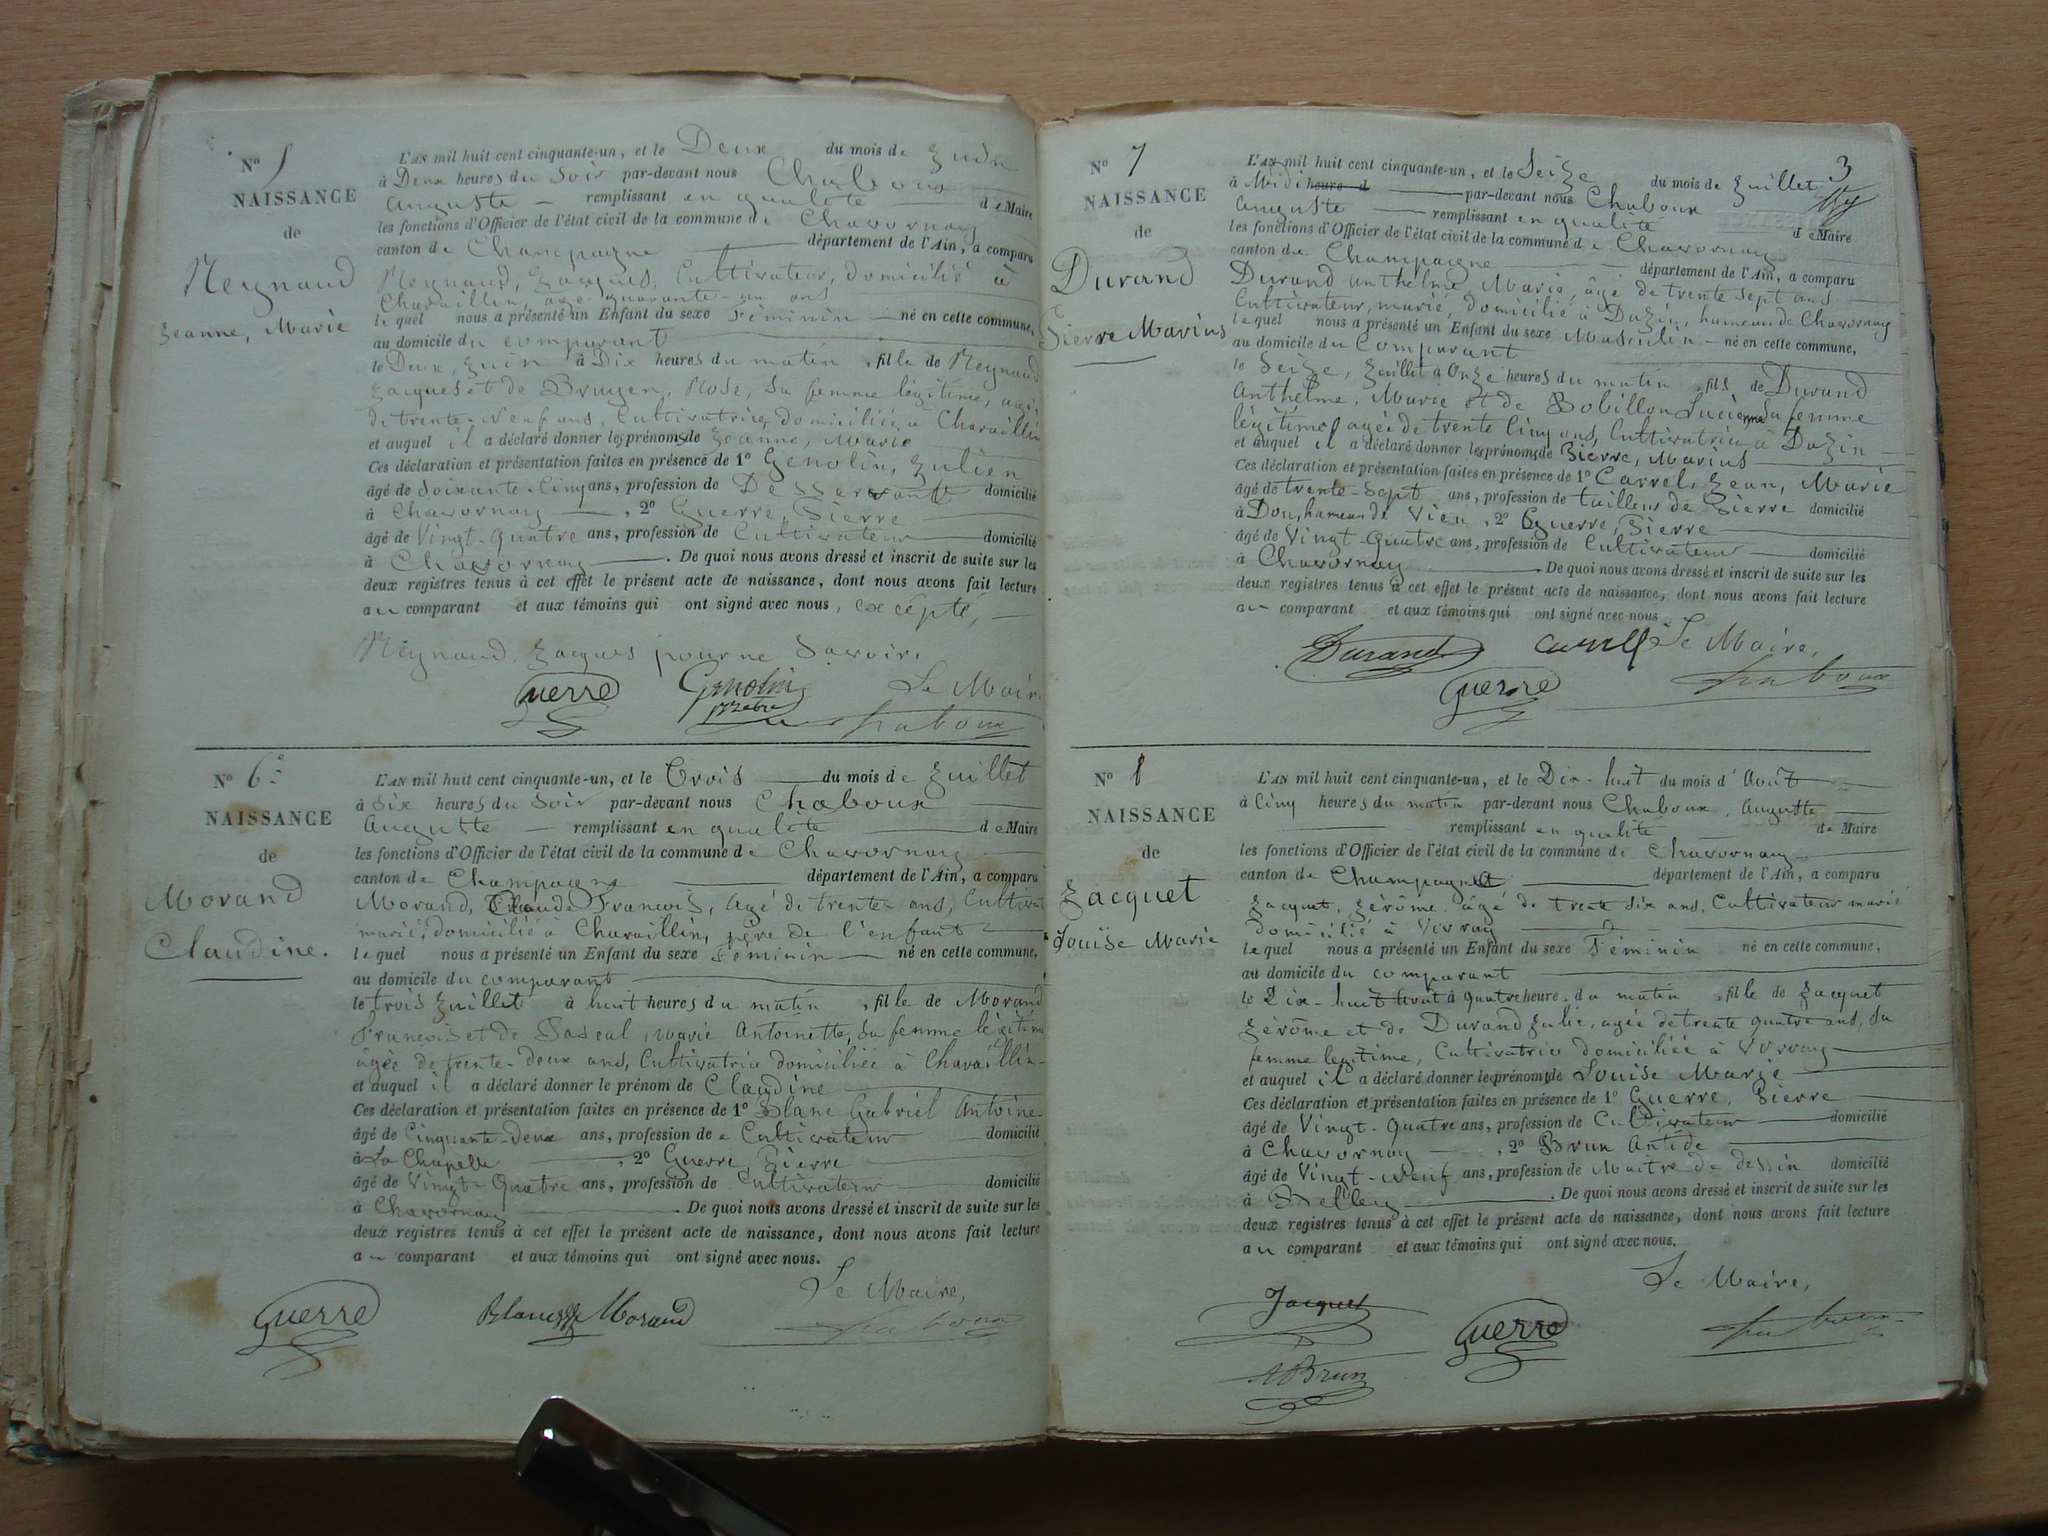 N° 5
NAISSANCE
de
Reynaud
Jeanne, Marie
L'AN mil huit cent cinquante-un, et le Deux du mois de Juin
à Deux heures du Soir par-devant nous Chaboux
Auguste remplissant en qualité de Maire
les fonctions d'Officier de l'état civil de la commune de Chavornay
canton de Champagne département de l'Ain, a comparu
Reynaud, Jacques, Cultivateur, domicilié à
Charaillin, age quarante-un ans
lequel nous a présenté un Enfant du sexe Féminin né en cette commune,
au domicile du comparant
le Deux Juin à Dix heures du matin, fille de Reynaud
Jacques et de Bruyer, Rose, Sa femme légitime, agée
de trente-neuf ans, Cultivatrice, domiciliée à Charaillin
et auquel il a déclaré donner les prénoms de Jeanne, Marie
Ces déclaration et présentation faites en présence de 1° Genolin, Julien
âgé de Soixante-Cinq ans, profession de Desservant domicilié
à Chavornay, 2° Guerre, Pierre
âgé de Vingt-Quatre ans, profession de Cultivateur domicilié
à Chavornay. De quoi nous avons dressé et inscrit de suite sur les
deux registres tenus à cet effet le présent acte de naissance, dont nous avons fait lecture
au comparant et aux témoins qui ont signé avec nous, excépté,
Reynaud, Jacques pour ne Savoir.
Guerre Genolin Le Maire
Chaboux
N° 6
NAISSANCE
de
Morand
Claudine.
L'AN mil huit cent cinquante-un, et le Trois du mois de Juillet
à Six heures du Soir par-devant nous Chaboux
Auguste remplissant en qualité de Maire
les fonctions d'Officier de l'état civil de la commune de Chavornay
canton de Champagne département de l'Ain, a comparu
Morand, Claude Francois, âgé de trente-ans, Cultivat
marié, domicilié à Charaillin, père de l'enfant
lequel nous a présenté un Enfant du sexe Féminin né en cette commune,
au domicile du comparant
le trois Juillet à huit heures du matin, fille de Morand
Francois et de Pascal, Marie Antoinette, Sa femme légitime
âgée de trente-deux ans, Cultivatrice domiciliée à Charaillin
et auquel il a déclaré donner le prénom de Claudine
Ces déclaration et présentation faites en présence de 1° Blanc Gabriel Antoine
âgé de Cinquante-deux ans, profession de Cultivateur domicilié
à La Chapelle, 2° Guerre, Pierre
âgé de Vingt-Quatre ans, profession de Cultivateur domicilié
à Chavornay. De quoi nous avons dressé et inscrit de suite sur les
deux registres tenus à cet effet le présent acte de naissance, dont nous avons fait lecture
au comparant et aux témoins qui ont signé avec nous.
Le Maire,
Guerre Blanc Morand Chaboux
3
N° 7
NAISSANCE
de
Durand
Pierre Marius
L'AN mil huit cent cinquante-un, et le Seize du mois de Juillet
à Midi heure d par-devant nous Chaboux
Auguste remplissant en qualité de Maire
les fonctions d'Officier de l'état civil de la commune de Chavornay
canton de Champagne département de l'Ain, a comparu
Durand Anthelme, Marie, âgé de trente sept ans
Cultivateur, marié, domicilié à Dazin, hameau de Chavornay
lequel nous a présenté un Enfant du sexe Masculin né en cette commune,
au domicile du Comparant
le Seize, Juillet à Onze heures du matin, fils de Durand
Anthelme, Marie et de Bobillon Lucienne Sa femme
légitime agée de trente Cinq ans, Cultivatrice à Dazin
et auquel il a déclaré donner les prénoms de Pierre, Marius
Ces déclaration et présentation faites en présence de 1° Carrel, Jean, Marie
âgé de trente-Sept ans, profession de tailleur de Pierre domicilié
à Don, hameau de Vieu, 2° Guerre, Pierre
âgé de Vingt-Quatre ans, profession de Cultivateur domicilié
à Chavornay. De quoi nous avons dressé et inscrit de suite sur les
deux registres tenus à cet effet le présent acte de naissance, dont nous avons fait lecture
au comparant et aux témoins qui ont signé avec nous
Durand Carrel Le Maire,
Guerre Chaboux
N° 8
NAISSANCE
de
Jacquet
Louise Marie
L'AN mil huit cent cinquante-un, et le Dix-huit du mois d'Août
à Cinq heures du matin par-devant nous Chaboux, Auguste
remplissant en qualité de Maire
les fonctions d'Officier de l'état civil de la commune de Chavornay
canton de Champagne département de l'Ain, a comparu
Jacquet, Jérôme, âgé de trente Six ans, Cultivateur marié
domicilié à Vovray
lequel nous a présenté un Enfant du sexe Féminin né en cette commune,
au domicile du comparant
le Dix-huit Août à quatre heure du matin, fille de Jacquet
Jérôme et de Durand Julie, agée de trente quatre ans, Sa
femme legitime, Cultivatrice domiciliée à Vovray
et auquel il a déclaré donner les prénoms de Louise Marie
Ces déclaration et présentation faites en présence de 1° Guerre, Pierre
âgé de Vingt-Quatre ans, profession de Cultivateur domicilié
à Chavornay, 2° Brun Antide
âgé de Vingt-neuf ans, profession de Maitre de dessin domicilié
à Belley. De quoi nous avons dressé et inscrit de suite sur les
deux registres tenus à cet effet le présent acte de naissance, dont nous avons fait lecture
au comparant et aux témoins qui ont signé avec nous.
Le Maire,
Jacquet Guerre Chaboux
ABrun